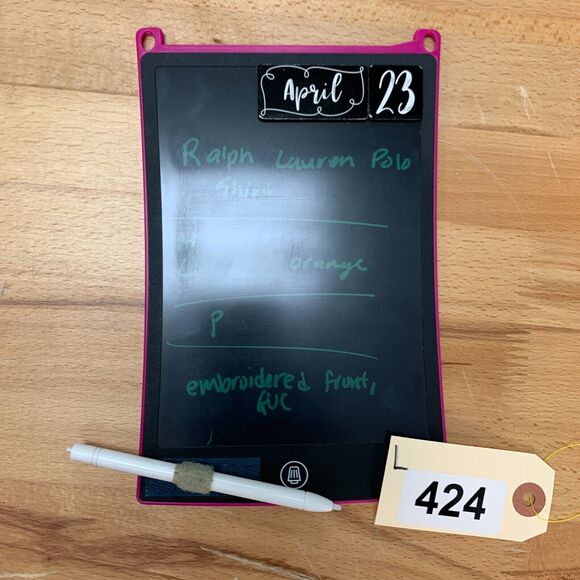 April 23
Ralph Lauren Polo
orange
P
embroidered front,
GUC
L
424